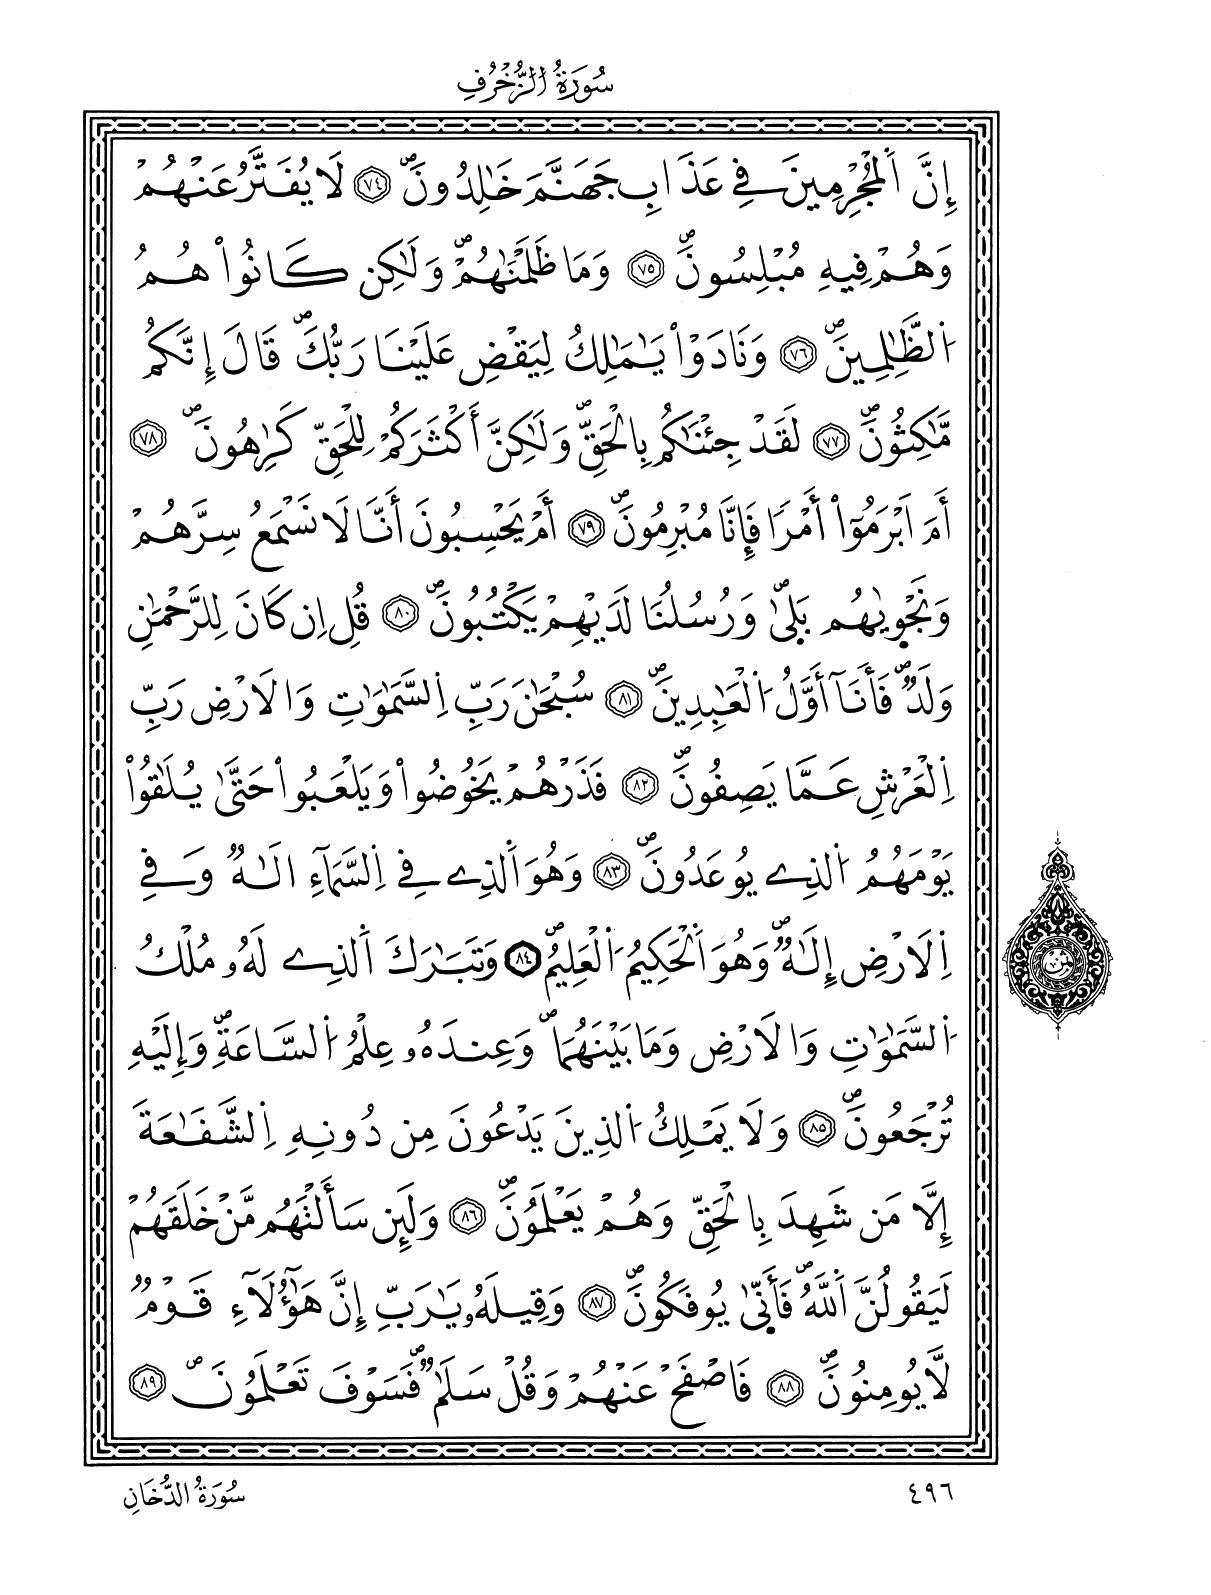 سُورَةُ الزُّخْرُفِ
إِنَّ اَ۬لْمُجْرِمِينَ فِے عَذَابِ جَهَنَّمَ خَٰلِدُونَۖ ٧٤ لَا يُفَتَّرُ عَنْهُمْ
وَهُمْ فِيهِ مُبْلِسُونَۖ ٧٥ وَمَا ظَلَمْنَٰهُمْۖ وَلَٰكِن كَانُواْ هُمُ
اُ۬لظَّٰلِمِينَۖ ٧٦ وَنَادَوْاْ يَٰمَٰلِكُ لِيَقْضِ عَلَيْنَا رَبُّكَۖ قَالَ إِنَّكُم
مَّٰكِثُونَۖ ٧٧ لَقَدْ جِئْنَٰكُم بِالْحَقِّۖ وَلَٰكِنَّ أَكْثَرَكُمْ لِلْحَقِّ كَٰرِهُونَۖ ٧٨
أَمَ اَبْرَمُوٓاْ أَمْراٗ فَإِنَّا مُبْرِمُونَۖ ٧٩ أَمْ يَحْسِبُونَ أَنَّا لَا نَسْمَعُ سِرَّهُمْ
وَنَجْو۪يٰهُم بَل۪ىٰۖ وَرُسُلُنَا لَدَيْهِمْ يَكْتُبُونَۖ ٨٠ قُلِ اِن كَانَ لِلرَّحْمَٰنِ
وَلَدٞۖ فَأَنَآ أَوَّلُ اُ۬لْعَٰبِدِينَۖ ٨١ سُبْحَٰنَ رَبِّ اِ۬لسَّمَٰوَٰتِ وَالَارْضِ رَبِّ
اِ۬لْعَرْشِ عَمَّا يَصِفُونَۖ ٨٢ فَذَرْهُمْ يَخُوضُواْ وَيَلْعَبُواْ حَتَّىٰ يُلَٰقُواْ
يَوْمَهُمُ اُ۬لذِے يُوعَدُونَۖ ٨٣ وَهُوَ اَ۬لذِے فِے اِ۬لسَّمَآءِ الَٰهٞ وَفِے
اِ۬لَارْضِ إِلَٰهٞۖ وَهُوَ اَ۬لْحَكِيمُ اُ۬لْعَلِيمُۖ ٨٤ وَتَبَٰرَكَ اَ۬لذِے لَهُۥ مُلْكُ
اُ۬لسَّمَٰوَٰتِ وَالَارْضِ وَمَا بَيْنَهُمَاۖ وَعِندَهُۥ عِلْمُ اُ۬لسَّاعَةِۖ وَإِلَيْهِ
تُرْجَعُونَۖ ٨٥ وَلَا يَمْلِكُ اُ۬لذِينَ يَدْعُونَ مِن دُونِهِ اِ۬لشَّفَٰعَةَ
إِلَّا مَن شَهِدَ بِالْحَقِّ وَهُمْ يَعْلَمُونَۖ ٨٦ وَلَئِن سَأَلْتَهُم مَّنْ خَلَقَهُمْ
لَيَقُولُنَّ اَ۬للَّهُۖ فَأَنّ۪ىٰ يُوفَكُونَۖ ٨٧ وَقِيلَهُۥ يَٰرَبِّ إِنَّ هَٰٓؤُلَآءِ قَوْمٞ
لَّا يُومِنُونَۖ ٨٨ فَاصْفَحْ عَنْهُمْ وَقُلْ سَلَٰمٞۖ فَسَوْفَ تَعْلَمُونَۖ ٨٩
٤٩٦
سُورَةُ الدُّخَانِ